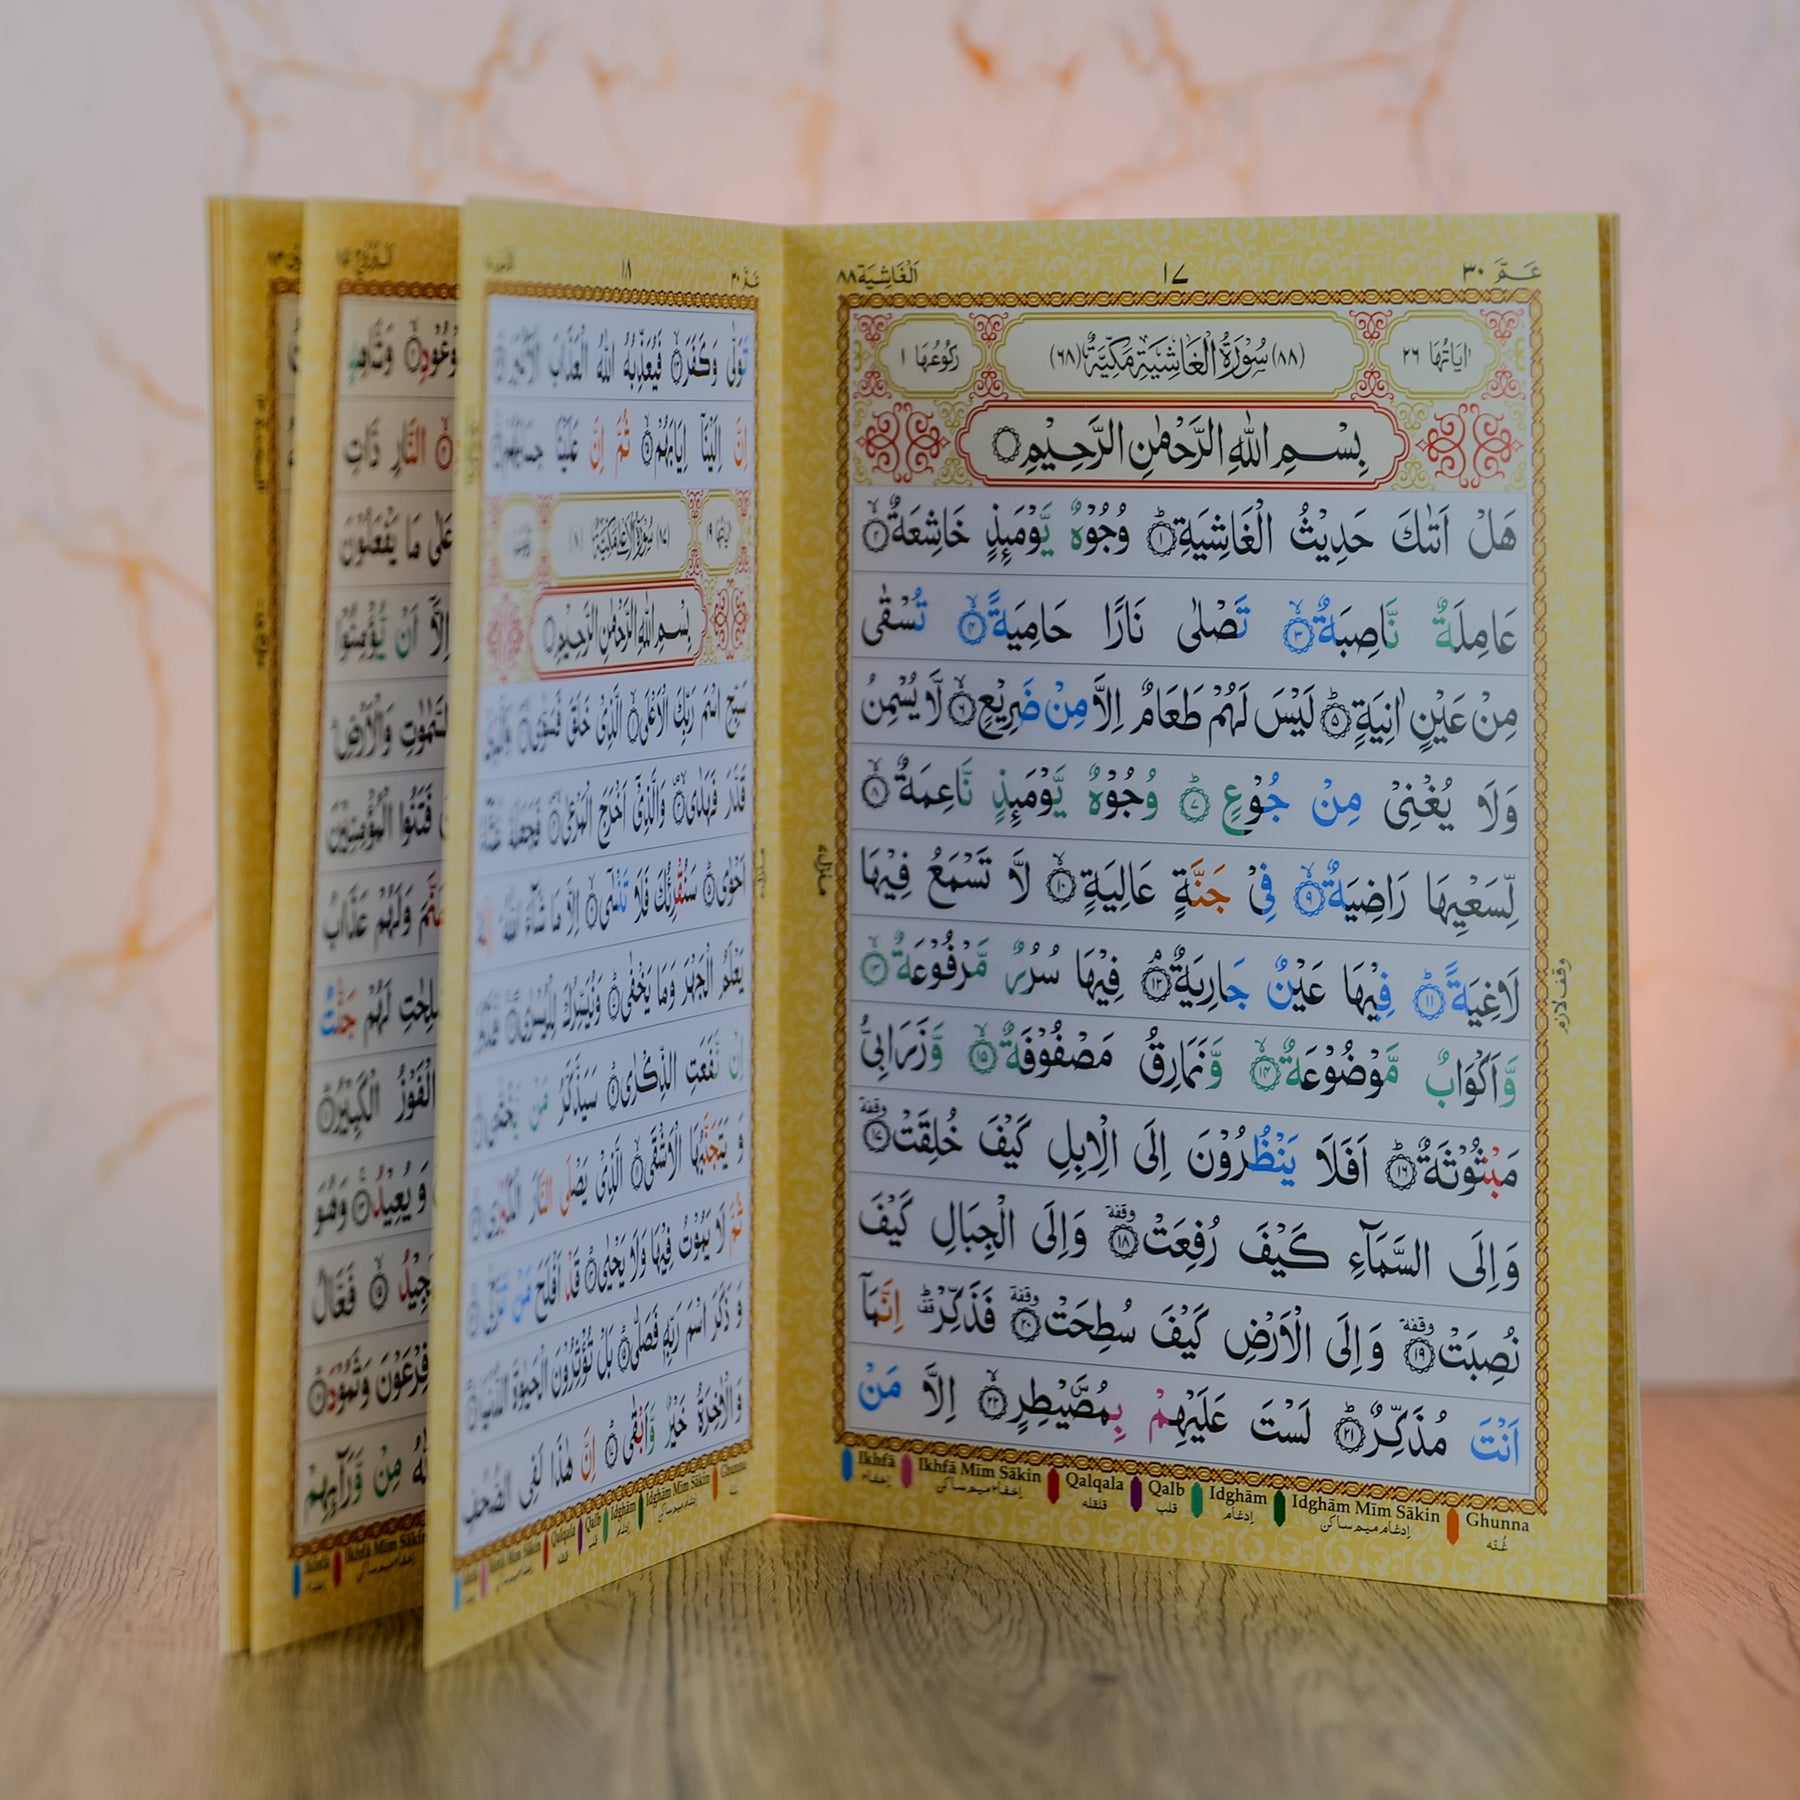 عَمَّ ٣٠
١٧
اَلْغَاشِيَة ٨٨
اٰيَاتُهَا ٢٦
(٨٨) سُوْرَةُ الْغَاشِيَةِ مَكِّيَّةٌ (٦٨)
رُكُوْعُهَا ١
بِسْمِ اللّٰهِ الرَّحْمٰنِ الرَّحِيْمِ
هَلْ اَتٰىكَ حَدِيْثُ الْغَاشِيَةِ ؕ﴿١﴾ وُجُوْهٌ يَّوْمَىِٕذٍ خَاشِعَةٌ ۙ﴿٢﴾
عَامِلَةٌ نَّاصِبَةٌ ۙ﴿٣﴾ تَصْلٰى نَارًا حَامِيَةً ۙ﴿٤﴾ تُسْقٰى
مِنْ عَيْنٍ اٰنِيَةٍ ؕ﴿٥﴾ لَيْسَ لَهُمْ طَعَامٌ اِلَّا مِنْ ضَرِيْعٍ ۙ﴿٦﴾ لَّا يُسْمِنُ
وَلَا يُغْنِىْ مِنْ جُوْعٍ ؕ﴿٧﴾ وُجُوْهٌ يَّوْمَىِٕذٍ نَّاعِمَةٌ ۙ﴿٨﴾
لِّسَعْيِهَا رَاضِيَةٌ ۙ﴿٩﴾ فِىْ جَنَّةٍ عَالِيَةٍ ۙ﴿١٠﴾ لَّا تَسْمَعُ فِيْهَا
لَاغِيَةً ؕ﴿١١﴾ فِيْهَا عَيْنٌ جَارِيَةٌ ۘ﴿١٢﴾ فِيْهَا سُرُرٌ مَّرْفُوْعَةٌ ۙ﴿١٣﴾
وَّاَكْوَابٌ مَّوْضُوْعَةٌ ۙ﴿١٤﴾ وَّنَمَارِقُ مَصْفُوْفَةٌ ۙ﴿١٥﴾ وَّزَرَابِىُّ
مَبْثُوْثَةٌ ؕ﴿١٦﴾ اَفَلَا يَنْظُرُوْنَ اِلَى الْاِبِلِ كَيْفَ خُلِقَتْ وقفة﴿١٧﴾
وَاِلَى السَّمَآءِ كَيْفَ رُفِعَتْ وقفة﴿١٨﴾ وَاِلَى الْجِبَالِ كَيْفَ
نُصِبَتْ وقفة﴿١٩﴾ وَاِلَى الْاَرْضِ كَيْفَ سُطِحَتْ وقفة﴿٢٠﴾ فَذَكِّرْ ؕ قف اِنَّمَآ
اَنْتَ مُذَكِّرٌ ؕ﴿٢١﴾ لَسْتَ عَلَيْهِمْ بِمُصَۜيْطِرٍ ۙ﴿٢٢﴾ اِلَّا مَنْ
وقف لازم
منزل
Ikhfā Ikhfā Mīm Sākin Qalqala Qalb Idghām Idghām Mīm Sākin Ghunna
إخفاء إخفاء ميم ساكن قلقله قلب إدغام إدغام ميم ساكن غُنّه
عَمَّ ٣٠
١٨
تَوَلّٰى وَكَفَرَ ۙ﴿٢٣﴾ فَيُعَذِّبُهُ اللّٰهُ الْعَذَابَ الْاَكْبَرَ
اِنَّ اِلَيْنَآ اِيَابَهُمْ ۙ﴿٢٥﴾ ثُمَّ اِنَّ عَلَيْنَا حِسَابَهُمْ
اٰيَاتُهَا ١٩
(٨٧) سُوْرَةُ الْاَعْلٰى مَكِّيَّةٌ (٨)
بِسْمِ اللّٰهِ الرَّحْمٰنِ الرَّحِيْمِ
سَبِّحِ اسْمَ رَبِّكَ الْاَعْلَى ۙ﴿١﴾ الَّذِىْ خَلَقَ فَسَوّٰى ۙ﴿٢﴾ وَالَّذِىْ
قَدَّرَ فَهَدٰى ۙ﴿٣﴾ وَالَّذِىْٓ اَخْرَجَ الْمَرْعٰى ۙ﴿٤﴾ فَجَعَلَهٗ غُثَآءً
اَحْوٰى ؕ﴿٥﴾ سَنُقْرِئُكَ فَلَا تَنْسٰٓى ۙ﴿٦﴾ اِلَّا مَا شَآءَ اللّٰهُ ؕ اِنَّهٗ
يَعْلَمُ الْجَهْرَ وَمَا يَخْفٰى ؕ﴿٧﴾ وَنُيَسِّرُكَ لِلْيُسْرٰى ۚ﴿٨﴾ فَذَكِّرْ
اِنْ نَّفَعَتِ الذِّكْرٰى ؕ﴿٩﴾ سَيَذَّكَّرُ مَنْ يَّخْشٰى
وَ يَتَجَنَّبُهَا الْاَشْقَى ۙ﴿١١﴾ الَّذِىْ يَصْلَى النَّارَ الْكُبْرٰى
ثُمَّ لَا يَمُوْتُ فِيْهَا وَلَا يَحْيٰى ؕ﴿١٣﴾ قَدْ اَفْلَحَ مَنْ تَزَكّٰى
وَ ذَكَرَ اسْمَ رَبِّهٖ فَصَلّٰى ؕ﴿١٥﴾ بَلْ تُؤْثِرُوْنَ الْحَيٰوةَ الدُّنْيَا
وَالْاٰخِرَةُ خَيْرٌ وَّاَبْقٰى ؕ﴿١٧﴾ اِنَّ هٰذَا لَفِى الصُّحُفِ
Ikhfā Mīm Sākin Qalqala Qalb Idghām Idghām Mīm Sākin Ghunna
النَّارِ ذَاتِ
عَلٰى مَا يَفْعَلُوْنَ
اِلَّآ اَنْ يُّؤْمِنُوْا
وَالْاَرْضِ
فَتَنُوا الْمُؤْمِنِيْنَ
وَلَهُمْ عَذَابُ
لَهُمْ جَنّٰتٌ
الْفَوْزُ الْكَبِيْرُ
وَ يُعِيْدُ ۚ وَهُوَ
فَعَّالٌ
فِرْعَوْنَ وَثَمُوْدَ
مِنْ وَّرَآىِٕهِمْ
Ikhfā Ikhfā Mīm Sākin